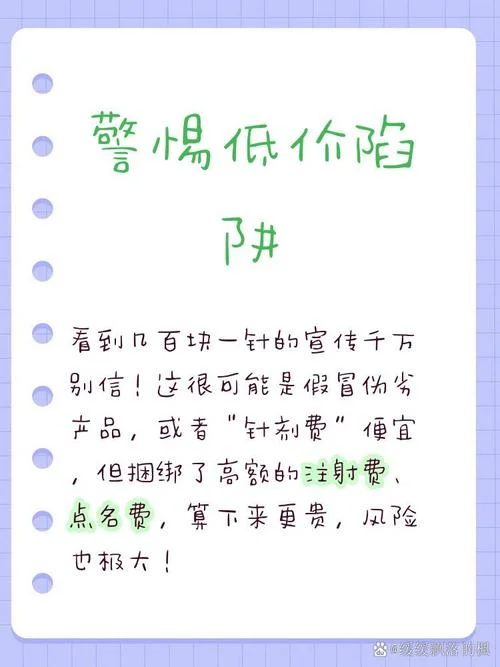 警惕低价陷
阱
看到几百块一针的宣传千万
别信！这很可能是假冒伪劣
产品，或者“针剂费”便宜
，但捆绑了高额的注射费、
点名费，算下来更贵，风险
也极大！
@缓缓飘落的枫